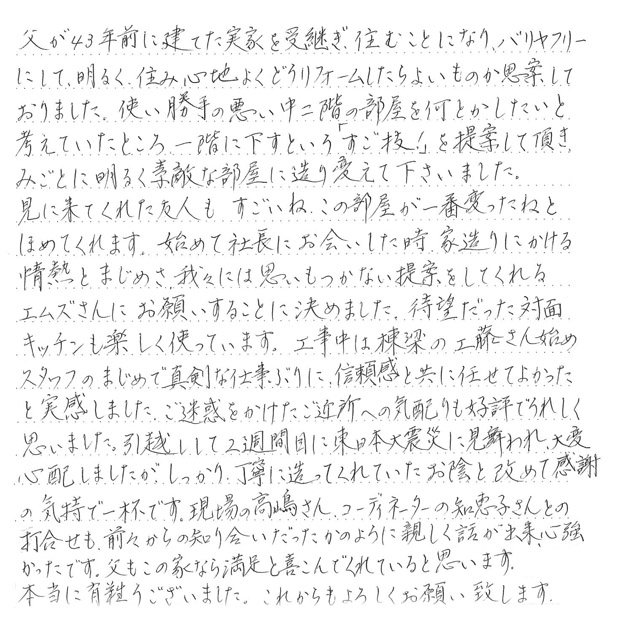 父が43年前に建てた実家を受継ぎ、住むことになり、バリヤフリー
にして、明るく、住み心地よくどうリフォームしたらよいものか思案して
おりました。使い勝手の悪い中二階の部屋を何とかしたいと
考えていたところ、一階に下すという「すご技!」を提案して頂き、
みごとに明るく素敵な部屋に造り変えて下さいました。
見に来てくれた友人も すごいね、この部屋が一番変ったねと
ほめてくれます。始めて社長にお会いした時、家造りにかける
情熱とまじめさ、我々には思いもつかない提案をしてくれる
エムズさんにお願いすることに決めました。待望だった対面
キッチンも楽しく使っています。工事中は棟梁の工藤さん始め
スタッフのまじめで真剣な仕事ぶりに、信頼感と共に任せてよかった
と実感しました。ご迷惑をかけたご近所への気配りも好評でうれしく
思いました。引越しして2週間目に東日本大震災に見舞われ、大変
心配しましたが、しっかり、丁寧に造ってくれていたお陰と改めて感謝
の気持で一杯です。現場の高嶋さん、コーディネーターの知恵子さんとの
打合せも、前々からの知り合いだったかのように親しく話が出来、心強
かったです。父もこの家なら満足と喜こんでくれていると思います。
本当に有難うございました。これからもよろしくお願い致します。